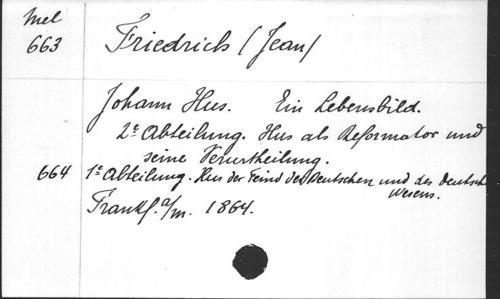 Mel
663 Friedrich (Jean)
Johann Hus. Ein Lebensbild.
2e Abteilung. Hus als Reformator und
seine Verurtheilung.
664 1e Abteilung. Hus der Feind des Deutschen und des deutsch
Wesens.
Frankf. a/m. 1864.